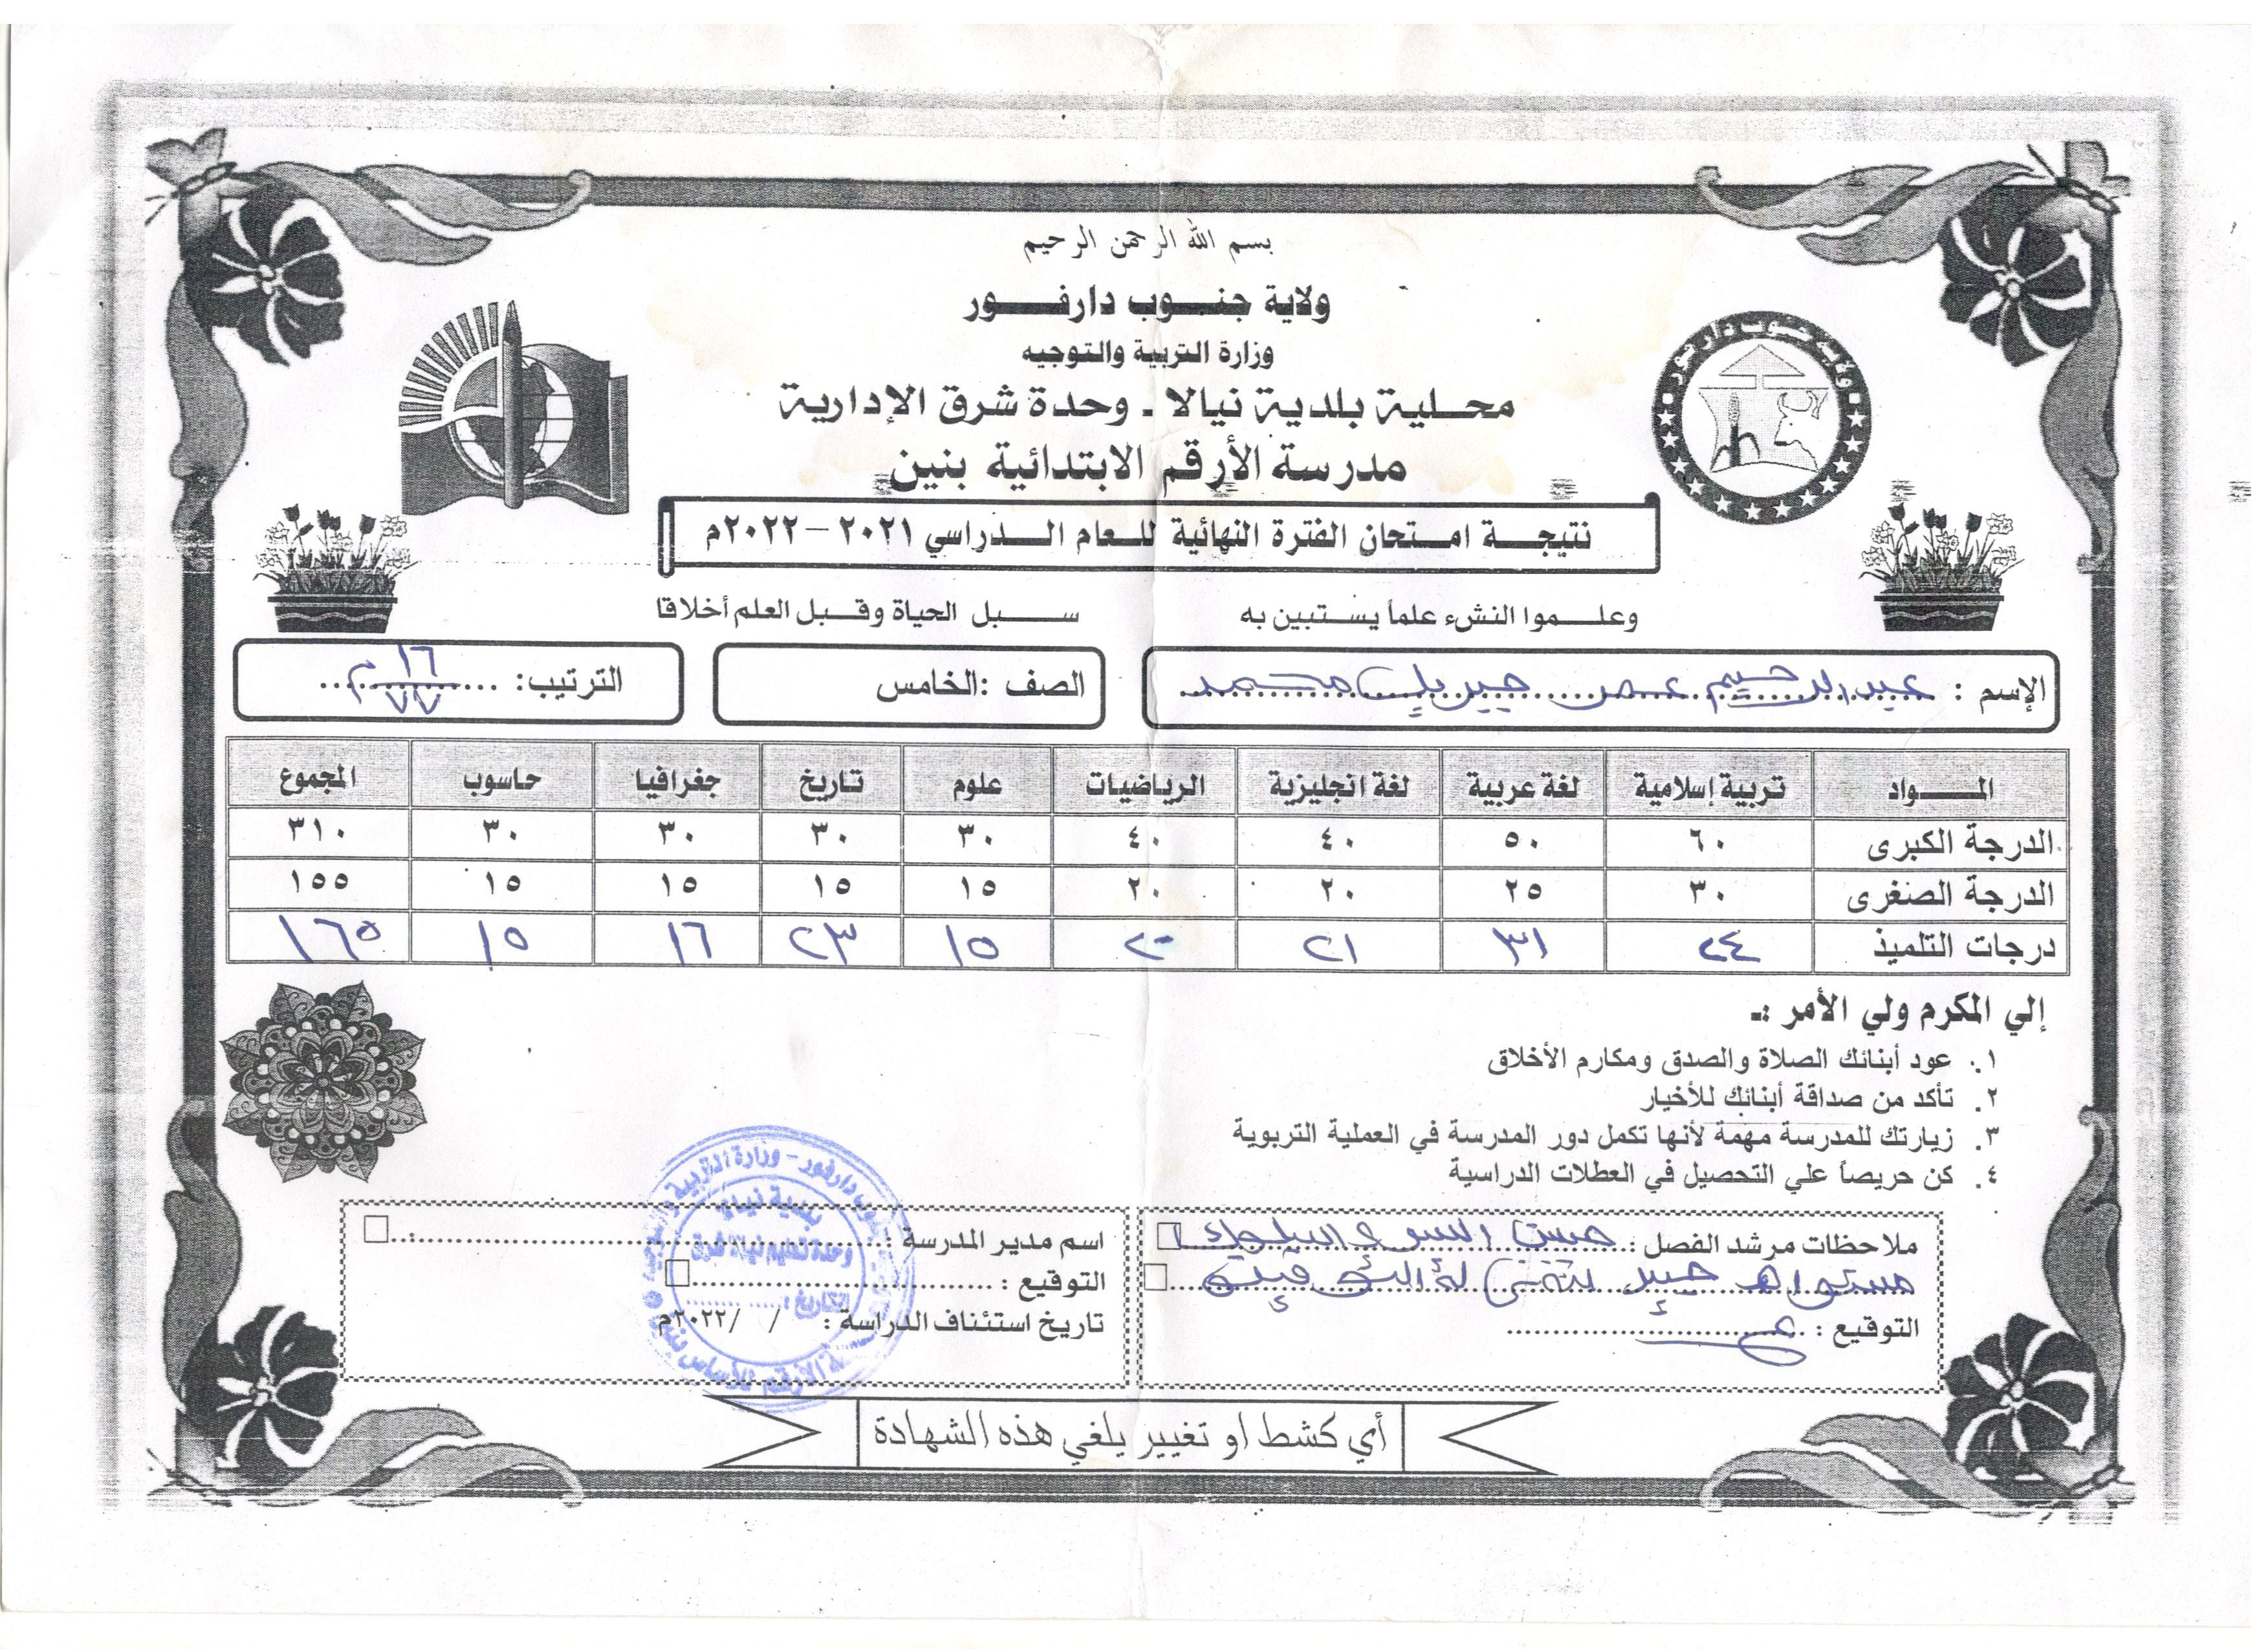 بسم الله الرحمن الرحيم
ولاية جنوب دارفور
وزارة التربية والتوجيه
محلية بلدية نيالا ـ وحدة شرق الإدارية
مدرسة الأرقم الابتدائية بنين
ولاية جنوب دارفور
نتيجة امتحان الفترة النهائية للعام الدراسي ٢٠٢١ – ٢٠٢٢م
وعلموا النشء علماً يستبين به سبل الحياة وقبل العلم أخلاقا
الإسم : عبدالرحيم عمر جبريل محمد الصف :الخامس الترتيب: ١٦ م
٧٧
المواد تربية إسلامية لغة عربية لغة انجليزية الرياضيات علوم تاريخ جغرافيا حاسوب المجموع
الدرجة الكبرى ٦٠ ٥٠ ٤٠ ٤٠ ٣٠ ٣٠ ٣٠ ٣٠ ٣١٠
الدرجة الصغرى ٣٠ ٢٥ ٢٠ ٢٠ ١٥ ١٥ ١٥ ١٥ ١٥٥
درجات التلميذ ٢٤ ٣١ ٢١ ٢٠ ١٥ ٢٣ ١٦ ١٥ ١٦٥
إلي المكرم ولي الأمر :ـ
١. عود أبنائك الصلاة والصدق ومكارم الأخلاق
٢. تأكد من صداقة أبنائك للأخيار
٣. زيارتك للمدرسة مهمة لأنها تكمل دور المدرسة في العملية التربوية
٤. كن حريصاً علي التحصيل في العطلات الدراسية
ملاحظات مرشد الفصل : حسن السير و السلوك
مستواه جيد نتمنى له التوفيق
التوقيع :
اسم مدير المدرسة :
التوقيع :
تاريخ استئناف الدراسة : / /٢٠٢٢م
وزارة التربية
بلدية نيالا
وحدة تعليم نيالا شرق
التاريخ :
الأرقم للأساس بنين
أي كشط او تغيير يلغي هذه الشهادة